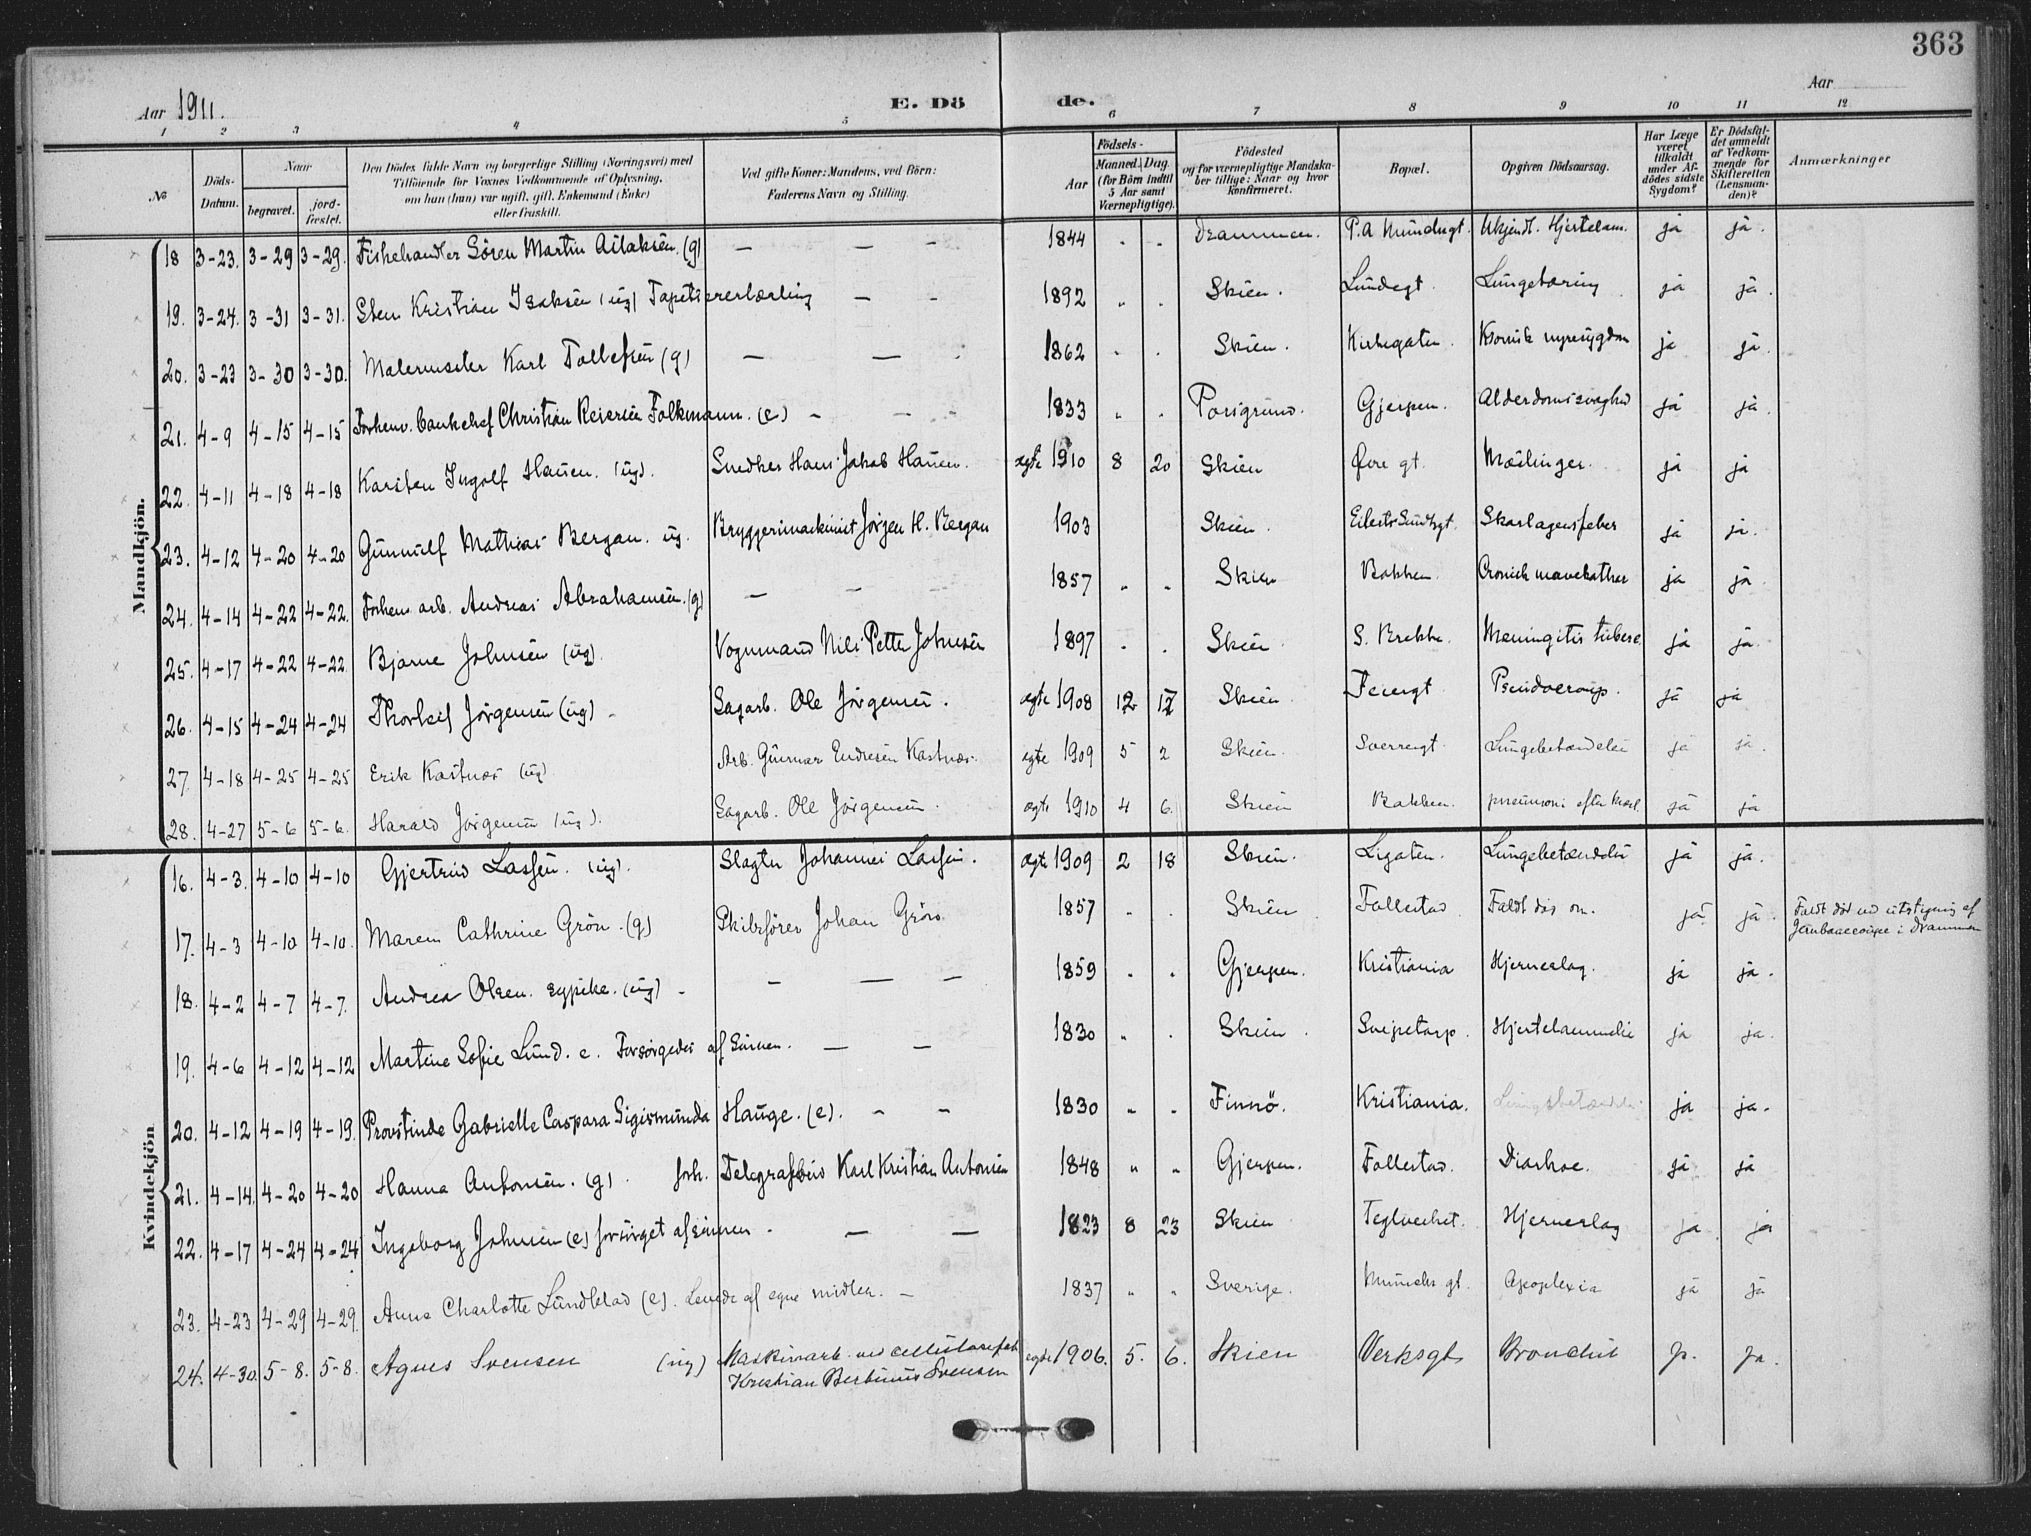 363
Aar 1911. E. Dö de. Aar
1 2 3 4 5 6 7 8 9 10 11 12
No Döds-Datum. Naar begravet. jord-fæstet. Den Dödes fulde Navn og borgerlige Stilling (Næringsvei) med Tilföiende for Voxnes Vedkommende af Oplysning, om han (hun) var ugift, gift, Enkemand (Enke) eller fraskilt. Ved gifte Koner: Mandens, ved Börn: Faderens Navn og Stilling. Födsels- Aar Maaned. Dag. (for Börn indtil 5 Aar samt Værnepligtige). Födested og for værnepligtige Mandska-ber tillige: Naar og hvor Konfirmeret. Bopæl. Opgiven Dödsaarsag. Har Læge været tilkaldt under Af-dödes sidste Sygdom? Er Dödsfal-det anmeldt af Vedkom-mende for Skifteretten (Lensman-den)? Anmærkninger
Mandkjön.
18 3-23. 3-29 3-29. Fiskehandler Sören Martin (g) — — - 1844 " " Drammen. P.A. Munchsgt. Ukjendt. Hjertelam. ja ja.
19. 3-24. 3-31 3-31. Sten Kristian Isaksen (ug) Tapetsererlærling — - 1892 " " Skien. Lundegt. Lungetæring ja ja.
20. 3-23 3-30 3-30. Malermester Karl Tollefsen (g) — — - 1862 " " Skien. Kirkegaten. Kronisk nyresygdom ja ja.
21. 4-9 4-15 4-15 Forhenv. bankchef Christian Reiersen Folkmann. (e) - — - 1833 " " Porsgrund. Gjerpen. Alderdomssvaghed ja ja.
22. 4-11 4-18 4-18 Karsten Ingolf Hansen. (ug). Snedker Hans Jakob Hansen. ægte 1910 8 20 Skien Øvre gt. Mæslinger. ja ja
23. 4-12 4-20 4-20 Gunnulf Mathias Bergan. ug. Bryggerimaskinist Jörgen H. Bergan 1903 Skien. Eilert Sundtsgt. Skarlagensfeber ja ja.
24. 4-14 4-22 4-22. Forhenv. arb. Andreas Abrahamsen. (g) — — - 1857 " " Skien Bakken. Cronisk mavekathar ja ja.
25. 4-17 4-22 4-22. Bjarne Johnsen (ug). Vognmand Nils Petter Johnsen 1897 " " Skien. S. Brekke. Meningitis tuberc. ja ja.
26. 4-15 4-24 4-24 Thorleif Jörgensen (ug) - Sagarb. Ole Jörgensen. ægte 1908 12 17 Skien. Feiergt. Pseudocroup. ja ja
27. 4-18 4-25 4-25 Erik Kastnes (ug) Arb. Gunnar Endresen Kastnes. ægte 1909 5 2 Skien. Sverresgt. Lungebetændelse ja ja.
28. 4-27 5-6 5-6. Harald Jörgensen (ug). Sagarb. Ole Jörgensen. ægte 1910 4 6. Skien Bakken. pneumoni efter ja ja
Kvindekjön
16. 4-3. 4-10 4-10 Gjertrud Lassen. (ug). Slagter Johannes Lassen. ægte 1909 2 18 Skien. Ligaten. Lungebetændelse ja ja.
17. 4-3 4-10 4-10. Maren Cathrine Grön. (g) Skibsförer Johan Grön 1857 " " Skien Follestad Faldt död om. ja ja. Faldt död ved utstigning af
Jernbanecoupe i Drammen
18. 4-2 4-7 4-7. Andrea Olsen. sypike. (ug) - - — - 1859 " " Gjerpen. Kristiania Hjerneslag. ja ja.
19. 4-6 4-12 4-12 Martine Sofie Lund. e. Forsörgedes af Sönnen. — — 1830 " " Skien. Sneipetorp. Hjertelammelse ja ja.
20. 4-12 4-19 4-19. Provstinde Gabrielle Caspara Sigismunda Hauge. (e). - - 1830 " " Finnö. Kristiania. Lungebetændelse ja ja.
21. 4-14. 4-20 4-20 Hanna Antonsen. (g). forh. Telegrafbud Karl Kristian Antonsen 1848 " " Gjerpen. Follestad. Diarhoe. ja ja
22. 4-17 4-24 4-24 Ingeborg Johnsen (e) forsörget af sönnen - — — 1823 8 23 Skien Teglverket. Hjerneslag ja ja
23. 4-23 4-29 4-29. Anna Charlotte Lundblad (e). Levede af egne midler. - 1837 " " Sverige. Munchs gt. Apoplexia ja ja
24. 4-30. 5-8. 5-8. Agnes Svensen (ug) Maskinarb. ved
Kristian Svensen ægte 1906. 5. 6. Skien Verksgt Bronchit ja. ja.